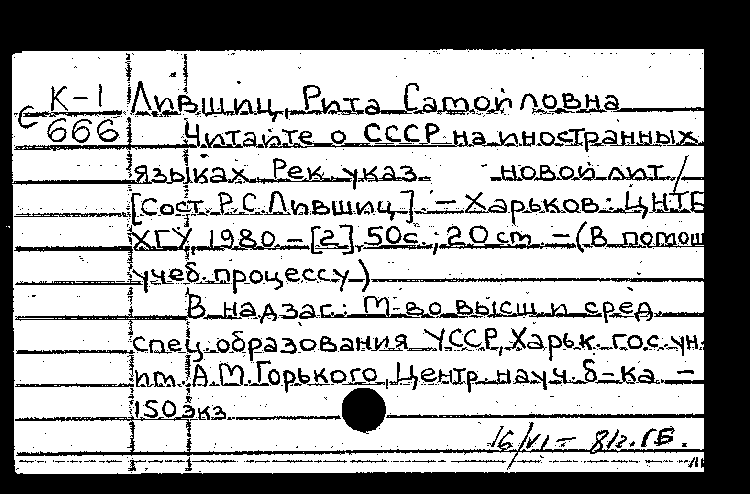 К-1 Лившиц, Рита Самойловна
С 666 Читайте о СССР на иностранных
языках. Рек. указ. новой лит /
[Сост. Р.С.Лившиц]. - Харьков: ЦНТБ
ХГУ, 1980 - [2], 50с.; 20 ст. - (В помощ
учеб. процессу)
В надзаг.: М-во высш и сред.
спец. образования УССР, Харьк. гос. ун-
им. А.М.Горького, Центр. науч. б-ка -
150 экз
16/VI -